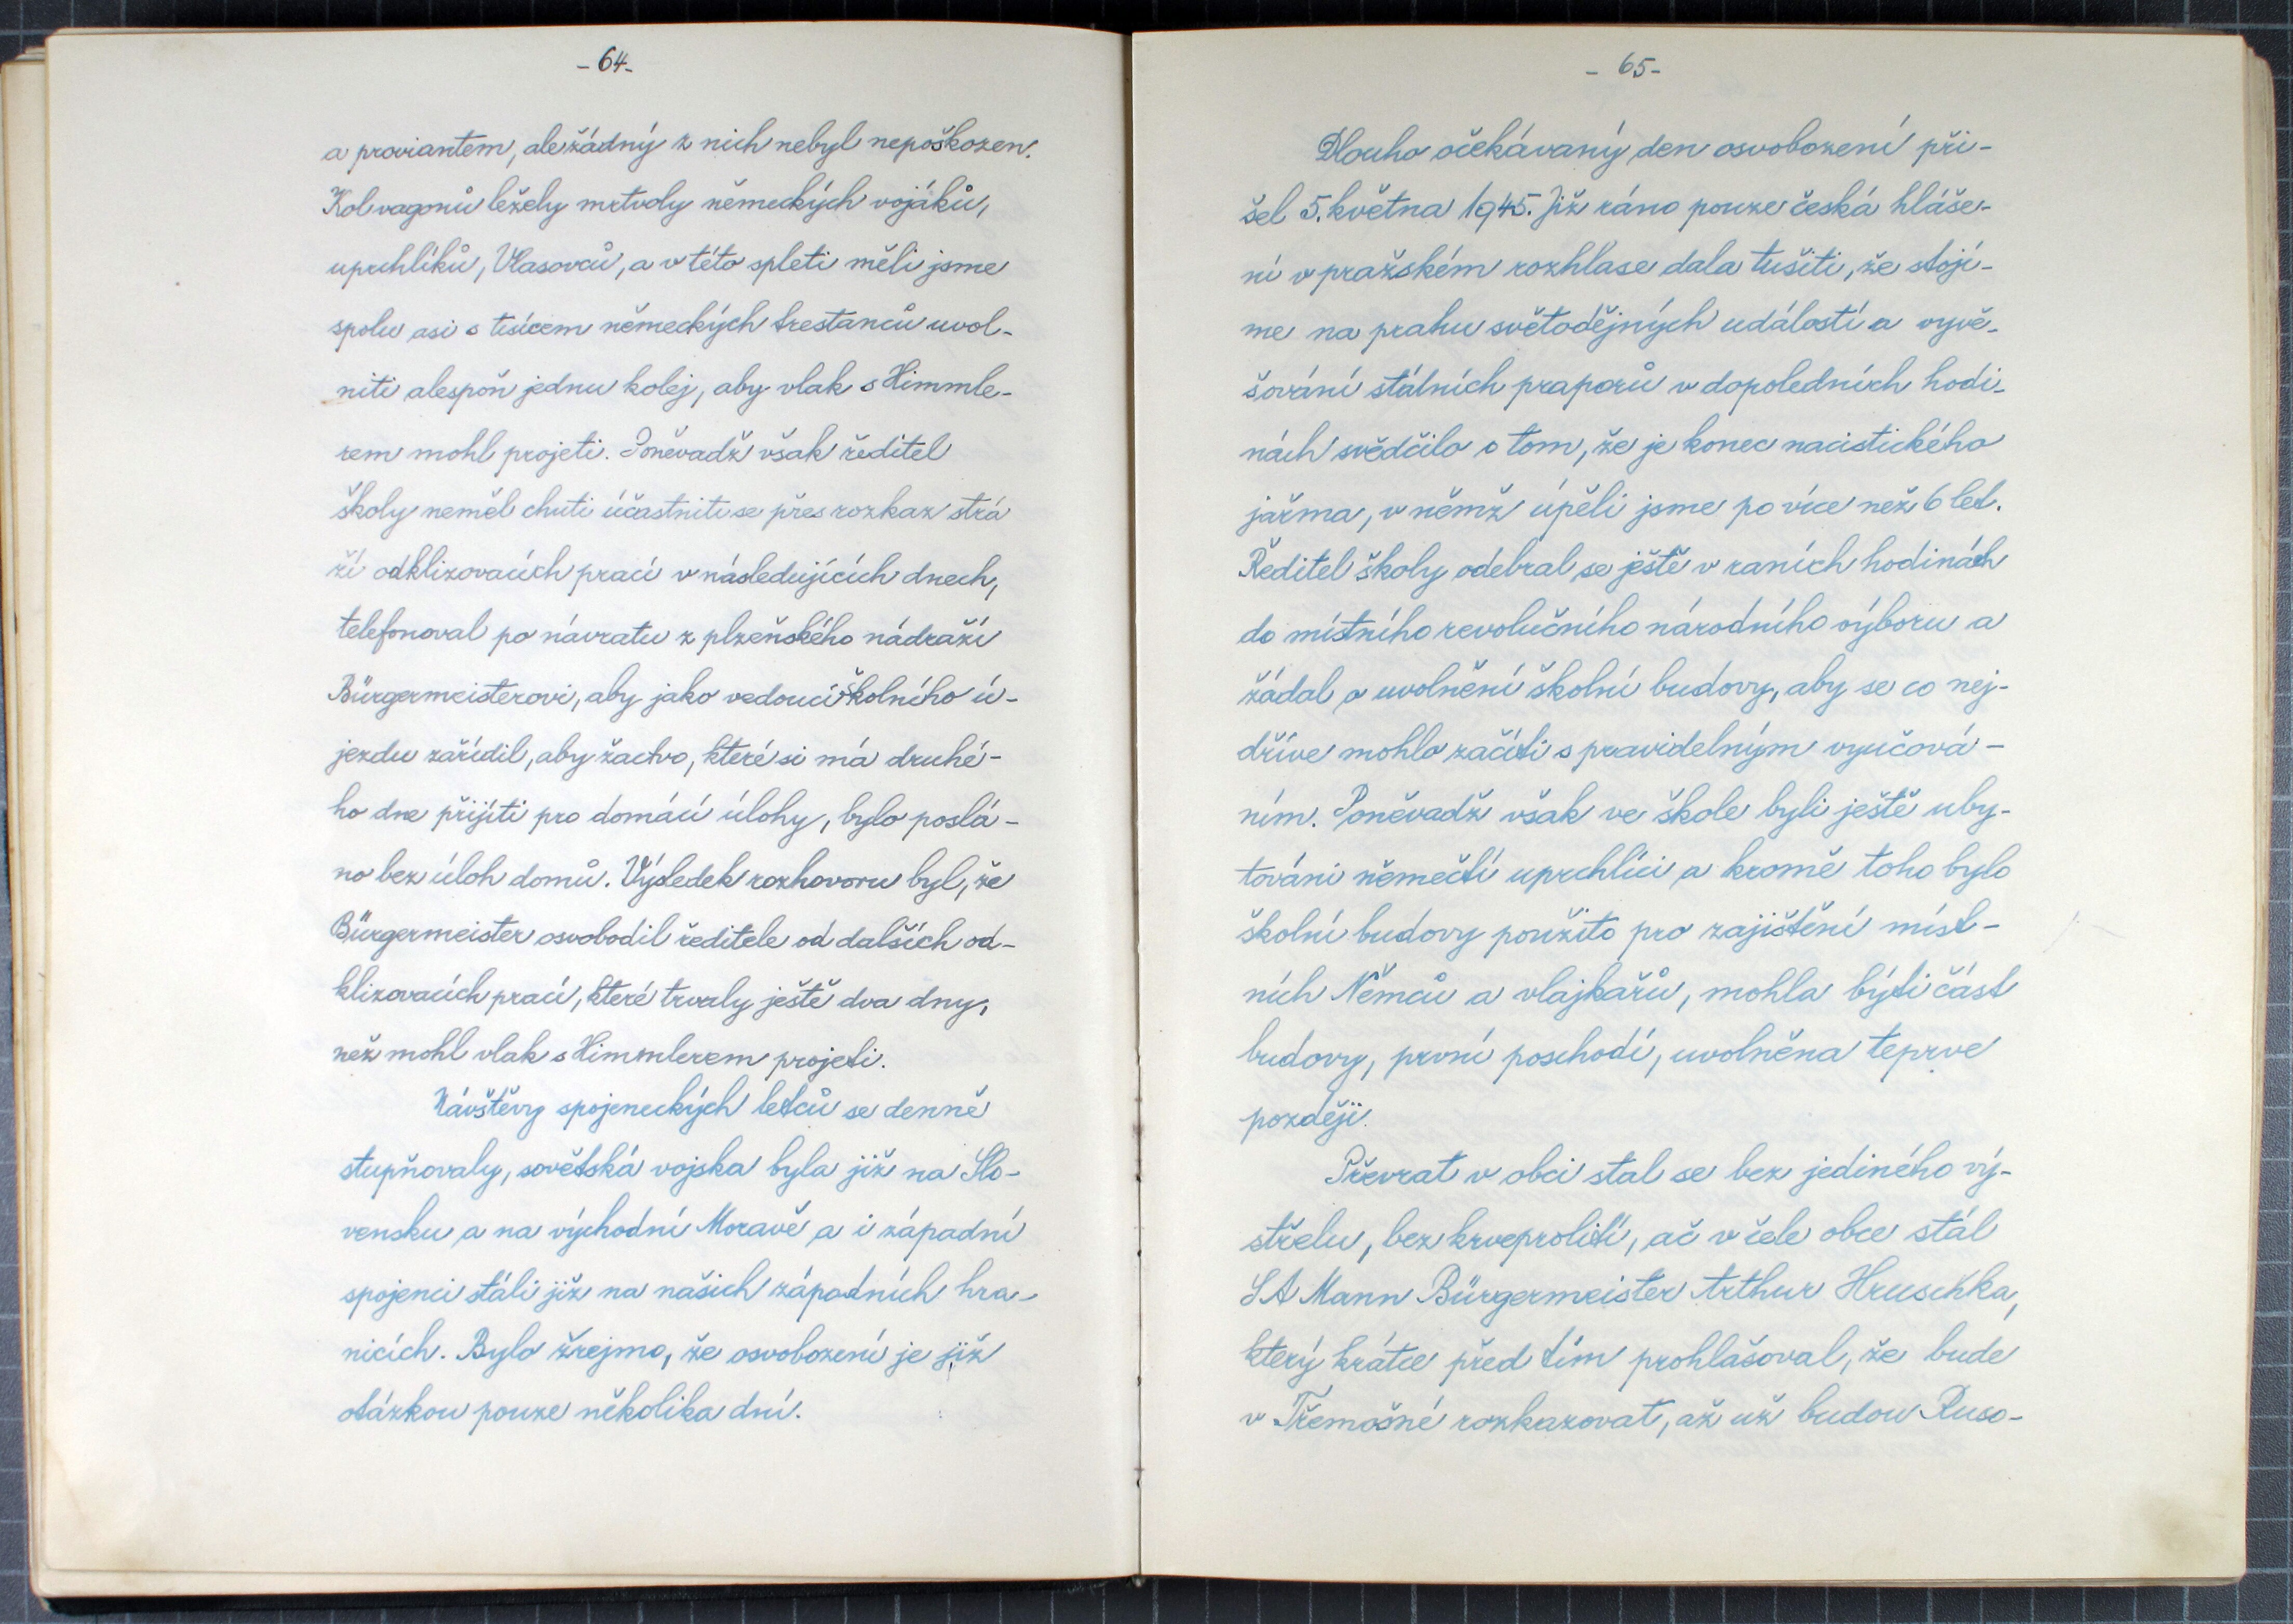 - 64 -
a proviantem, ale žádný z nich nebyl nepoškozen.
Kol vagonů ležely mrtvoly německých vojáků,
uprchlíků, Vlasovců, a v této spleti měli jsme
spolu asi s tisícem německých trestanců uvol-
niti alespoň jednu kolej, aby vlak s Himmle-
rem mohl projeti. Poněvadž však ředitel
školy neměl chuti účastniti se přes rozkaz strá
ží odklizovacích prací v následujících dnech,
telefonoval po návratu z plzeňského nádraží
Bürgermeisterovi, aby jako vedoucí školního ú-
jezdu zařídil, aby žactvo, které si má druhé-
ho dne přijíti pro domácí úlohy, bylo poslá-
no bez úloh domů. Výsledek rozhovoru byl, že
Bürgermeister osvobodil ředitele od dalších od-
klizovacích prací, které trvaly ještě dva dny,
než mohl vlak s Himmlerem projeti.
Návštěvy spojeneckých letců se denně
stupňovaly, sovětská vojska byla již na Slo-
vensku a na východní Moravě a i západní
spojenci stáli již na našich západních hra-
nicích. Bylo zřejmo, že osvobození je již
otázkou pouze několika dní.
- 65 -
Dlouho očekávaný den osvobození při-
šel 5. května 1945. Již ráno pouze česká hláše-
ní v pražském rozhlase dala tušiti, že stojí-
me na prahu světodějných událostí a vyvě-
šování státních praporů v dopoledních hodi-
nách svědčilo o tom, že je konec nacistického
jařma, v němž úpěli jsme po více než 6 let.
Ředitel školy odebral se ještě v raních hodinách
do místního revolučního národního výboru a
žádal o uvolnění školní budovy, aby se co nej-
dříve mohlo začíti s pravidelným vyučová-
ním. Poněvadž však ve škole byli ještě uby-
továni němečtí uprchlíci a kromě toho bylo
školní budovy použito pro zajištění míst-
ních Němců a vlajkařů, mohla býti část
budovy, první poschodí, uvolněna teprve
později.
Převrat v obci stal se bez jediného vý-
střelu, bez krveprolití, ač v čele obce stál
SA Mann Bürgermeister Arthur Hruschka,
který krátce před tím prohlašoval, že bude
v Třemošné rozkazovat, až už budou Ruso-